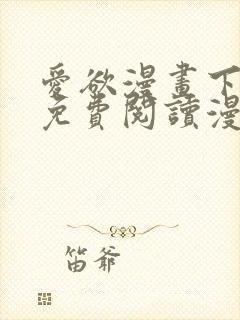 愛欲漫畫下
免費閱讀漫
笛爷